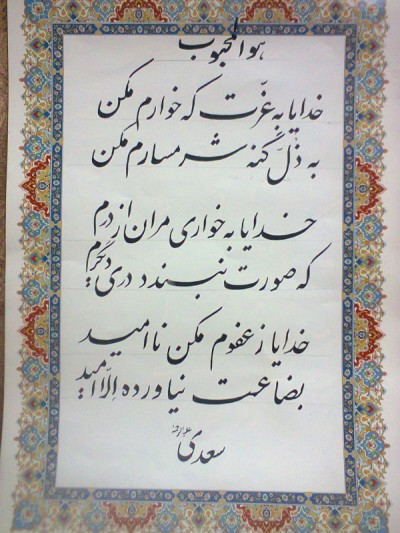 هوالمحبوب
خدایا به عزّت که خوارم مکن
به ذلّ گنه شرمسارم مکن
خدایا به خواری مران از درم
که صورت نبندد دری دیگرم
خدایا ز عفوم مکن ناامید
بضاعت نیاورده الّا امید
سعدی علیه الرحمه